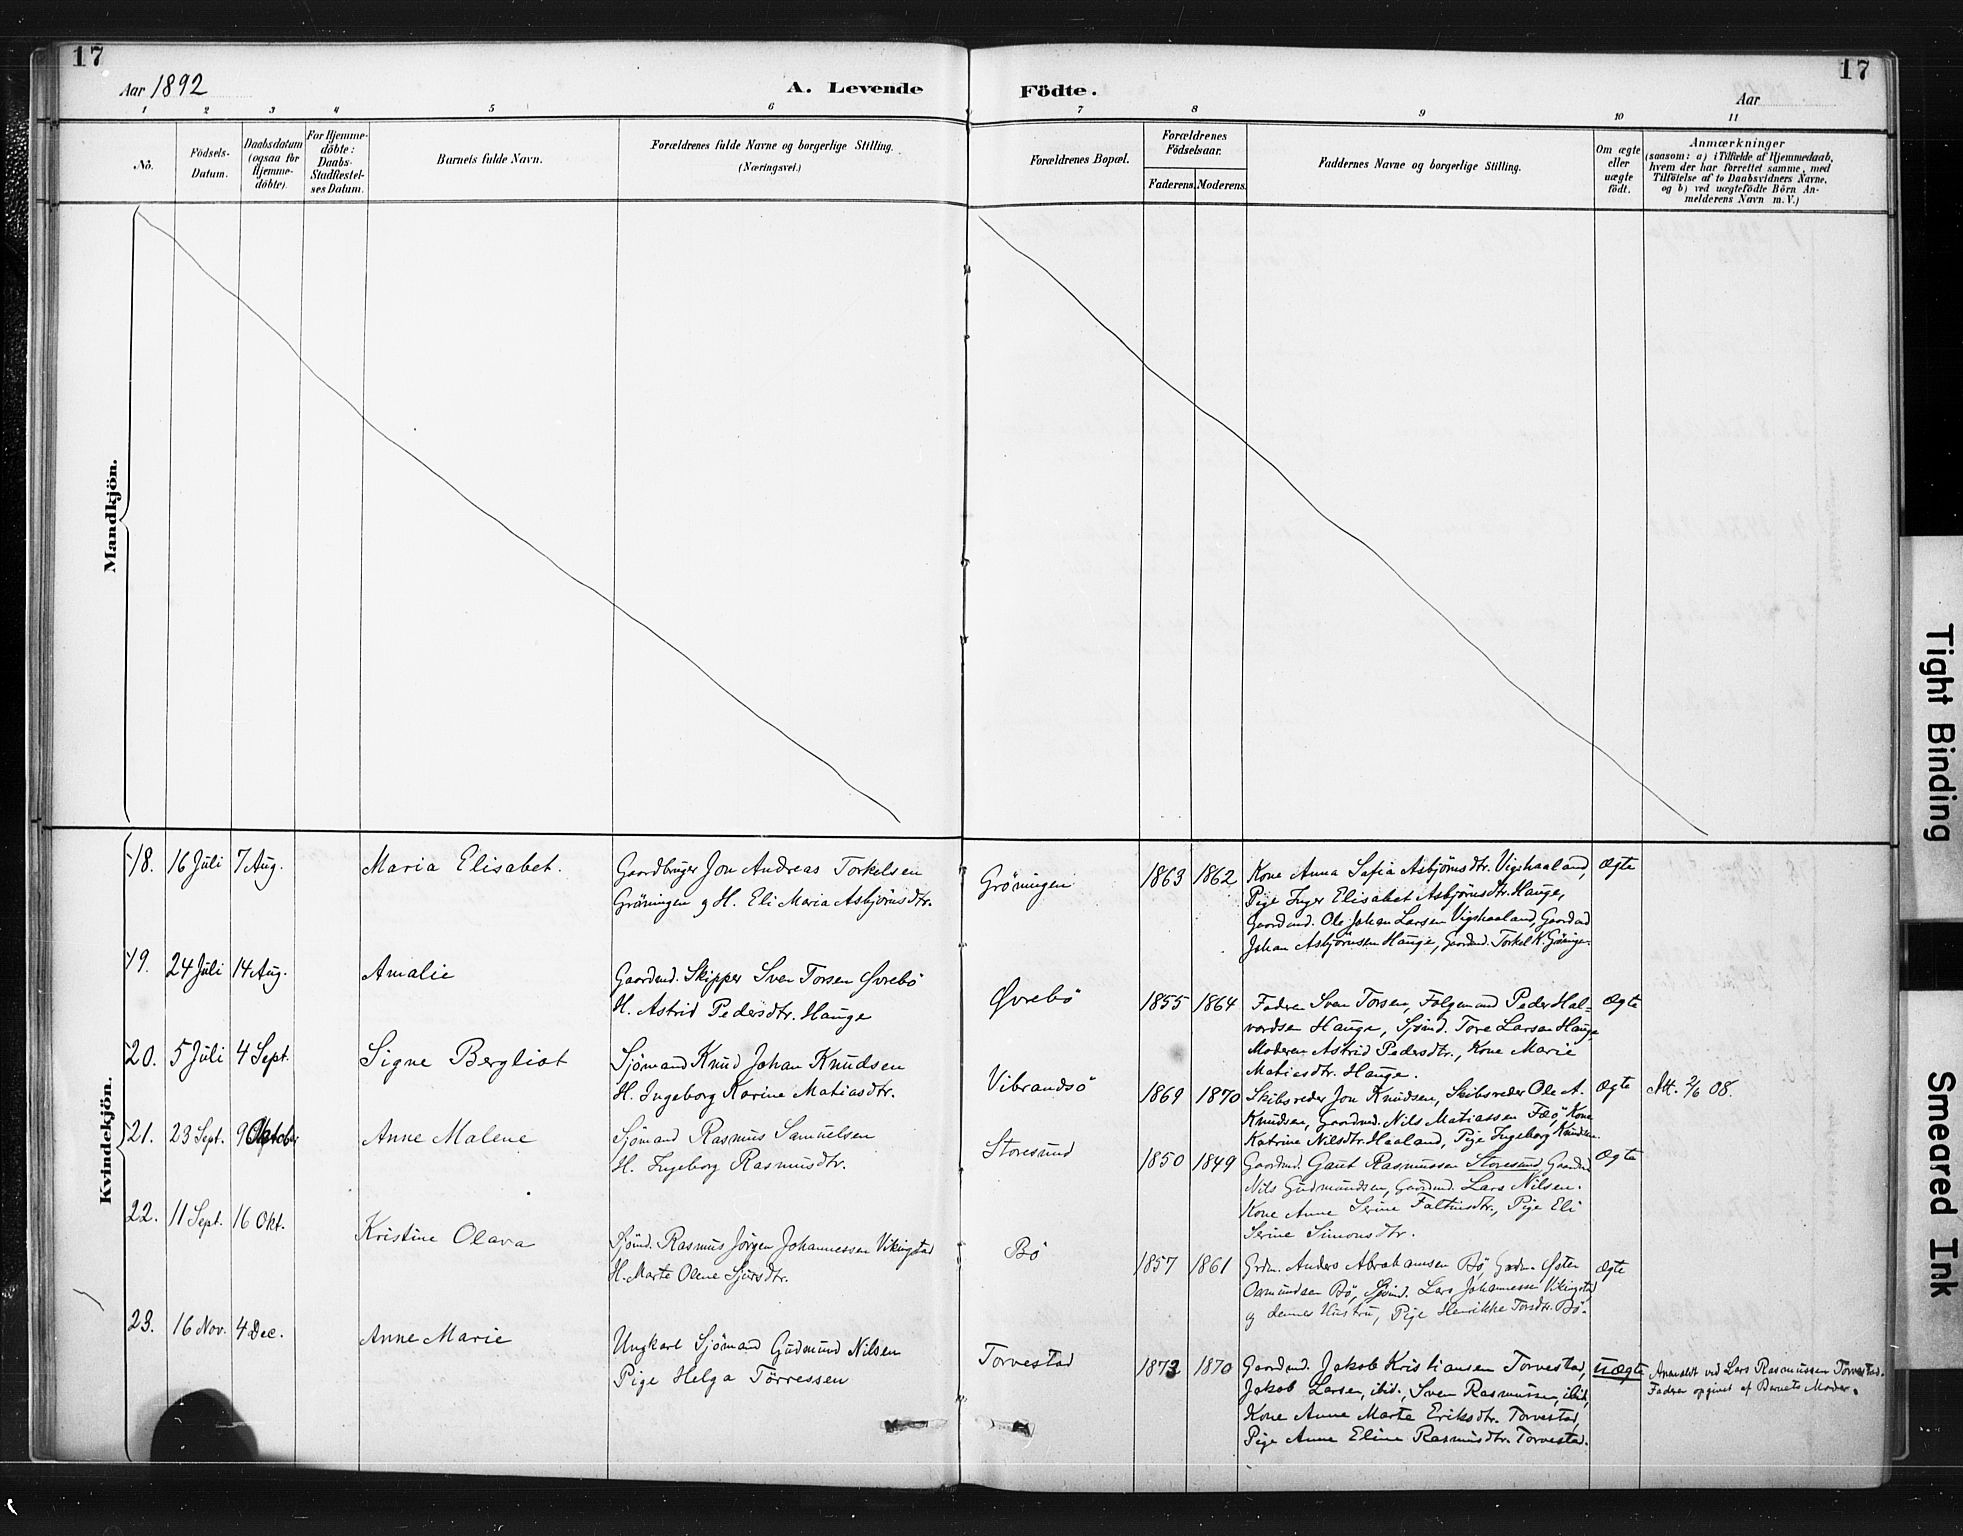 17
17
Aar 1892
A. Levende Födte.
Aar
1 2 3 4 5 6 7 8 9 10 11
No.
Födsels-Datum.
Daabsdatum (ogsaa for Hjemme-döbte).
For Hjemme-döbte: Daabs-Stadfæstel-ses Datum.
Barnets fulde Navn.
Forældrenes fulde Navne og borgerlige Stilling.
(Næringsvei.)
Forældrenes Bopæl.
Forældrenes Födselsaar.
Faderens. Moderens.
Faddernes Navne og borgerlige Stilling.
Om ægte eller uægte födt.
Anmærkninger
(saasom: a) i Tilfælde af Hjemmedaab,
hvem der har forrettet samme, med
Tilföielse af to Daabsvidners Navne,
og b) ved uægtefödte Börn An-
melderens Navn m.V.)
Mandkjön.
Kvindekjön.
18. 16 Juli 7 Aug. Maria Elisabet.
Gaardbruger Jon Andreas Torkelsen
Gröningen og H. Eli Maria Asbjörnsdtr.
Gröningen 1863 1862
Kone Anna Sofia Asbjörnsdtr. Vigshaaland,
Pige Inger Elisabet Asbjörnsdtr. Hauge,
Gaardmd. Ole Johan Larsen Vigshaaland, Gaardmd
Johan Asbjörnsen Hauge, Gaardmd. Torkel K. Gröninge.
Ægte
19. 24 Juli 14 Aug. Amalie
Gaardmd. Skipper Sven Torsen Øvrebö
H. Astrid Pedersdtr. Hauge
Øvrebö 1855 1864
Faderen Sven Torsen, Følgemand Peder Hal-
vordsen Hauge, Sjömd. Tore Larsen Hauge
Moderen Astrid Pedersdtr., Kone Marie
Matiasdtr. Hauge.
Ægte
20. 5 Juli 4 Sept. Signe Bergliot
Sjömand Knud Johan Knudsen
H. Ingeborg Karine Matiasdtr.
Vibrandsö 1869 1870
Skibsreder Jon Knudsen, Skibsreder Ole A.
Knudsen, Gaardmd. Nils Matiassen Fæö, Kone
Katrine Nilsdtr. Haaland, Pige Ingeborg Knudsen.
Ægte Att. 2/6 08.
21. 23 Sept. 9 Oktober Anne Malene
Sjömand Rasmus Samuelsen
H. Ingeborg Rasmusdtr.
Storesund 1850 1849
Gaardmd. Gaut Rasmussen Storesund, Gaardmd
Nils Gudmundsen, Gaardmd. Lars Nilsen.
Kone Anne Serine Faltinsdtr., Pige Eli
Serine Simonsdtr.
Ægte
22. 11 Sept. 16 Okt. Kristine Olava
Sjömd. Rasmus Jörgen Johannessen Vikingstad
H. Marte Olene Sjursdtr.
Bö 1857 1861
Grdm. Anders Abrahamsen Bö, Grdm. Østen
Osmundsen Bö, Sjömd. Lars Johannessen Vikingstad
og dennes Hustru, Pige Henrikke Torsdtr. Bö.
Ægte
23. 16 Nov. 4 Dec. Anne Marie
Ungkarl Sjömand Gudmund Nilsen
Pige Helga Törressen
Torvestad 1873 1870
Gaardmd. Jakob Kristiansen Torvestad,
Jakob Larsen, ibid., Sven Rasmussen, ibid,
Kone Anne Marte Eriksdtr. Torvestad,
Pige Anne Eline Rasmusdtr. Torvestad.
Uægte
Anmeldt ved Lars Rasmussen Torvestad.
Faderen opgivet af Barnets Moder.
Tight Binding
Smeared Ink